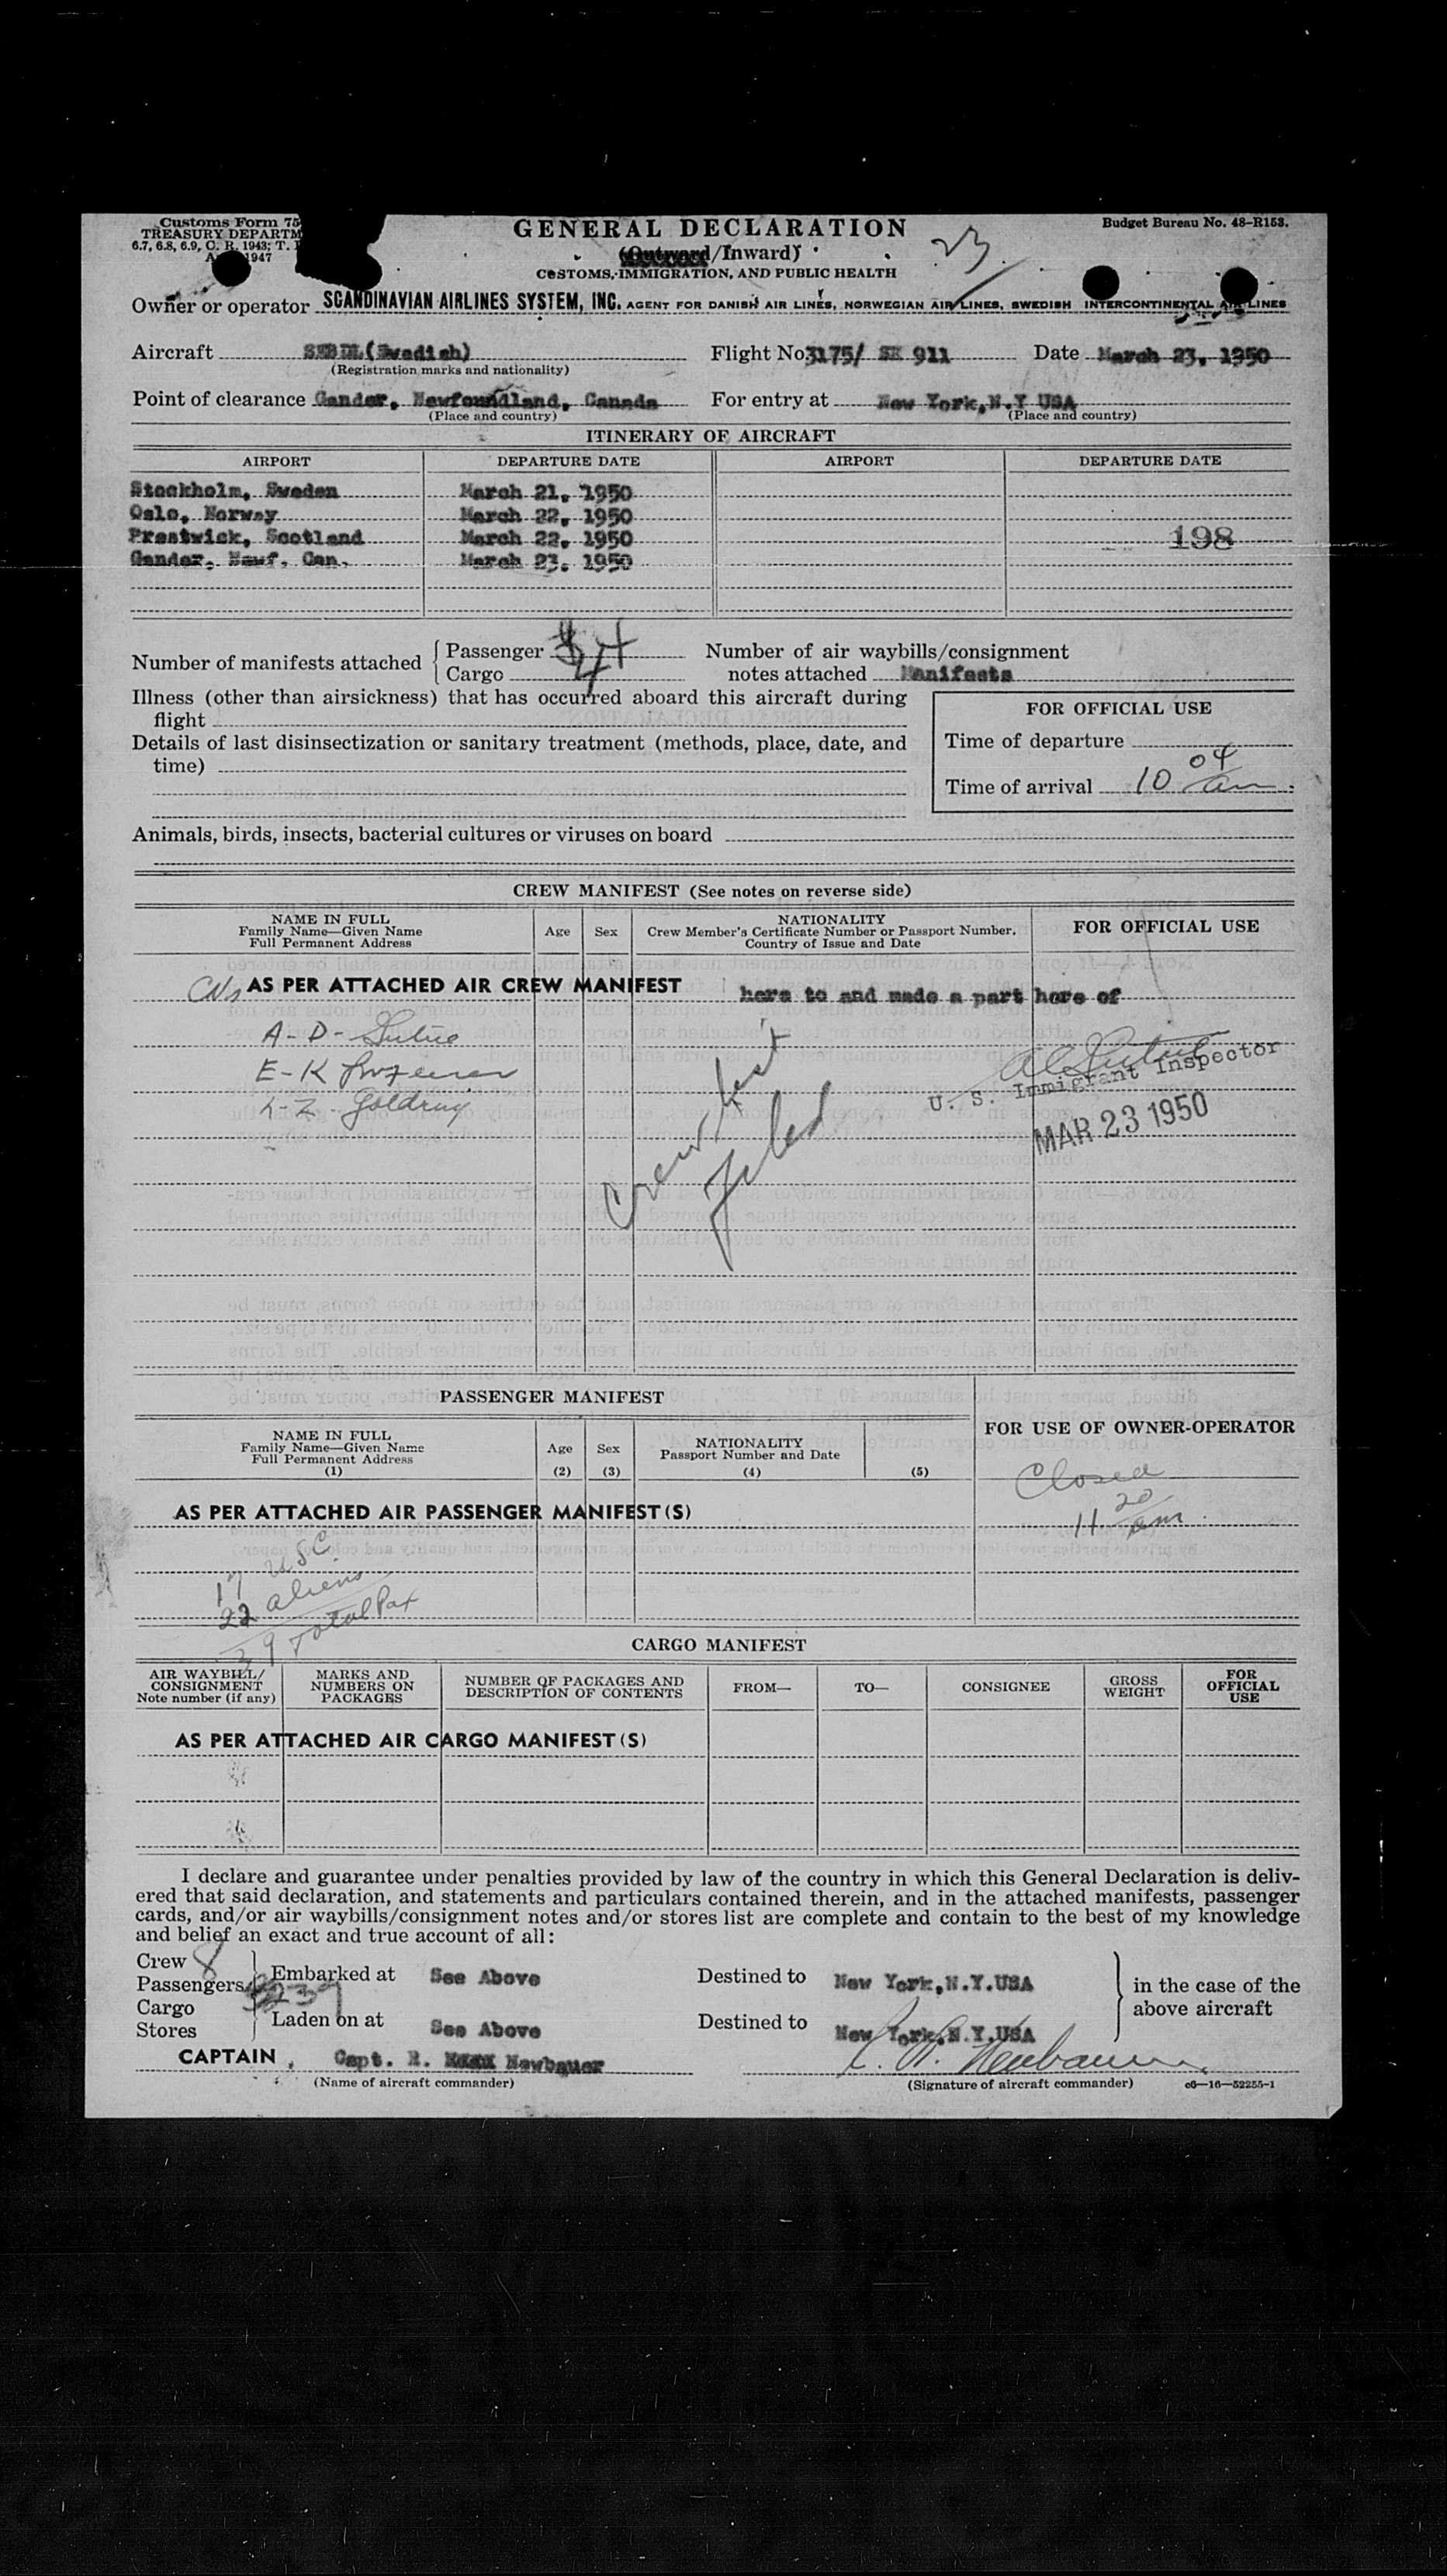 Customs Form 75
TREASURY DEPARTM
6.7, 6.8, 6.9, C. R. 1943; T.
1947
GENERAL DECLARATION
(Outward/Inward)
CUSTOMS, IMMIGRATION, AND PUBLIC HEALTH
23
Budget Bureau No. 48-R153.
Owner or operator SCANDINAVIAN AIRLINES SYSTEM, INC. AGENT FOR DANISH AIR LINES, NORWEGIAN AIR LINES, SWEDISH INTERCONTINENTAL AIR LINES
Aircraft (Swedish) Flight No. 3175/ SK 911 Date March 23, 1950
(Registration marks and nationality)
Point of clearance Gander, Newfoundland, Canada For entry at New York, N.Y USA
(Place and country) (Place and country)
ITINERARY OF AIRCRAFT
AIRPORT DEPARTURE DATE AIRPORT DEPARTURE DATE
Stockholm, Sweden March 21, 1950
Oslo, Norway March 22, 1950
Prestwick, Scotland March 22, 1950 198
Gander, Newf. Can. March 23, 1950
Number of manifests attached { Passenger
Cargo
Number of air waybills/consignment
notes attached Manifests
Illness (other than airsickness) that has occurred aboard this aircraft during
flight
Details of last disinsectization or sanitary treatment (methods, place, date, and
time)
FOR OFFICIAL USE
Time of departure
Time of arrival 10 04 am
Animals, birds, insects, bacterial cultures or viruses on board
CREW MANIFEST (See notes on reverse side)
NAME IN FULL
Family Name—Given Name
Full Permanent Address
Age Sex
NATIONALITY
Crew Member's Certificate Number or Passport Number,
Country of Issue and Date
FOR OFFICIAL USE
AS PER ATTACHED AIR CREW MANIFEST here to and made a part here of
A-D-
E-K
L-Z- Goldring
Crew list
U. S. Immigrant Inspector
MAR 23 1950
PASSENGER MANIFEST
NAME IN FULL
Family Name—Given Name
Full Permanent Address
(1)
Age
(2)
Sex
(3)
NATIONALITY
Passport Number and Date
(4)
(5)
FOR USE OF OWNER-OPERATOR
Closed
11 20 am
AS PER ATTACHED AIR PASSENGER MANIFEST(S)
17 USC
22 aliens
39 Total Pax
CARGO MANIFEST
AIR WAYBILL/
CONSIGNMENT
Note number (if any)
MARKS AND
NUMBERS ON
PACKAGES
NUMBER OF PACKAGES AND
DESCRIPTION OF CONTENTS
FROM—
TO—
CONSIGNEE
GROSS
WEIGHT
FOR
OFFICIAL
USE
AS PER ATTACHED AIR CARGO MANIFEST(S)
I declare and guarantee under penalties provided by law of the country in which this General Declaration is deliv-
ered that said declaration, and statements and particulars contained therein, and in the attached manifests, passenger
cards, and/or air waybills/consignment notes and/or stores list are complete and contain to the best of my knowledge
and belief an exact and true account of all:
Crew 8
Passengers 39
Cargo
Stores
Embarked at See Above Destined to New York, N.Y. USA
Laden on at See Above Destined to New York, N.Y. USA
in the case of the
above aircraft
CAPTAIN, Capt. R. Newbauer
(Name of aircraft commander) (Signature of aircraft commander) c6—16—52255-1